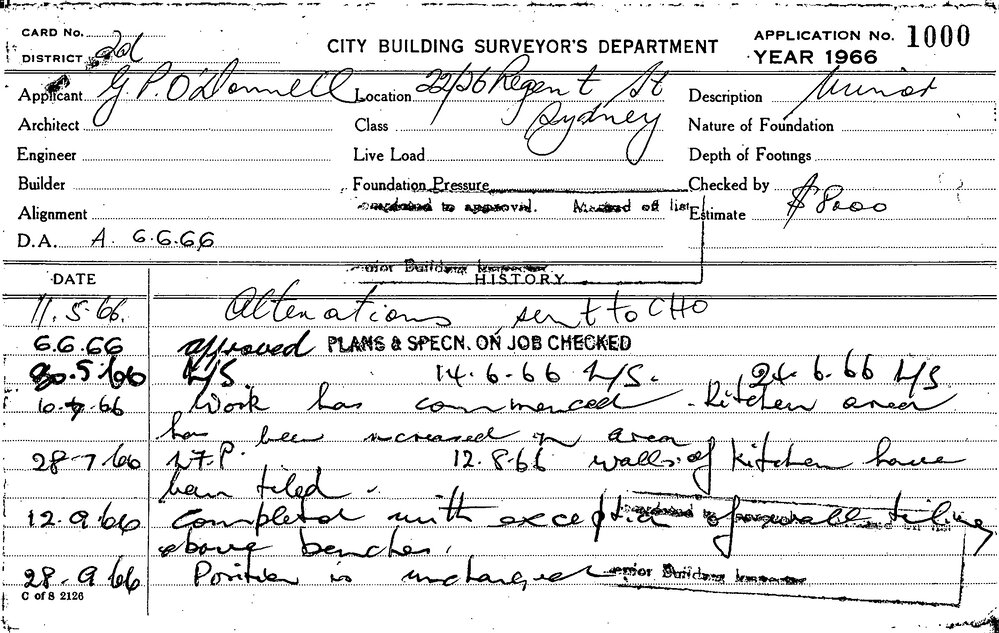 CARD No.
DISTRICT 2d
CITY BUILDING SURVEYOR'S DEPARTMENT
APPLICATION No. 1000
YEAR 1966
Applicant G. P. O'Donnell Location 22/26 Regent St Description Minor
Architect Class Sydney Nature of Foundation
Engineer Live Load Depth of Footings
Builder Foundation Pressure Checked by
to approval. Marked off list
Alignment Estimate $8000
D.A. A. 6.6.66
Senior Building Inspector
DATE HISTORY
11.5.66. Alterations sent to CHO
6.6.66 approved PLANS & SPECN. ON JOB CHECKED
30.5.66 L/S. 14.6.66 L/S. 24.6.66 L/S
10.7.66 Work has commenced - Kitchen area
has been increased in area
28.7.66 W.I.P. 12.8.66 walls of Kitchen have
been tiled.
12.9.66 Completed with exception of wall tiling
above benches.
28.9.66 Position is unchanged
Senior Building Inspector
C of S 2126